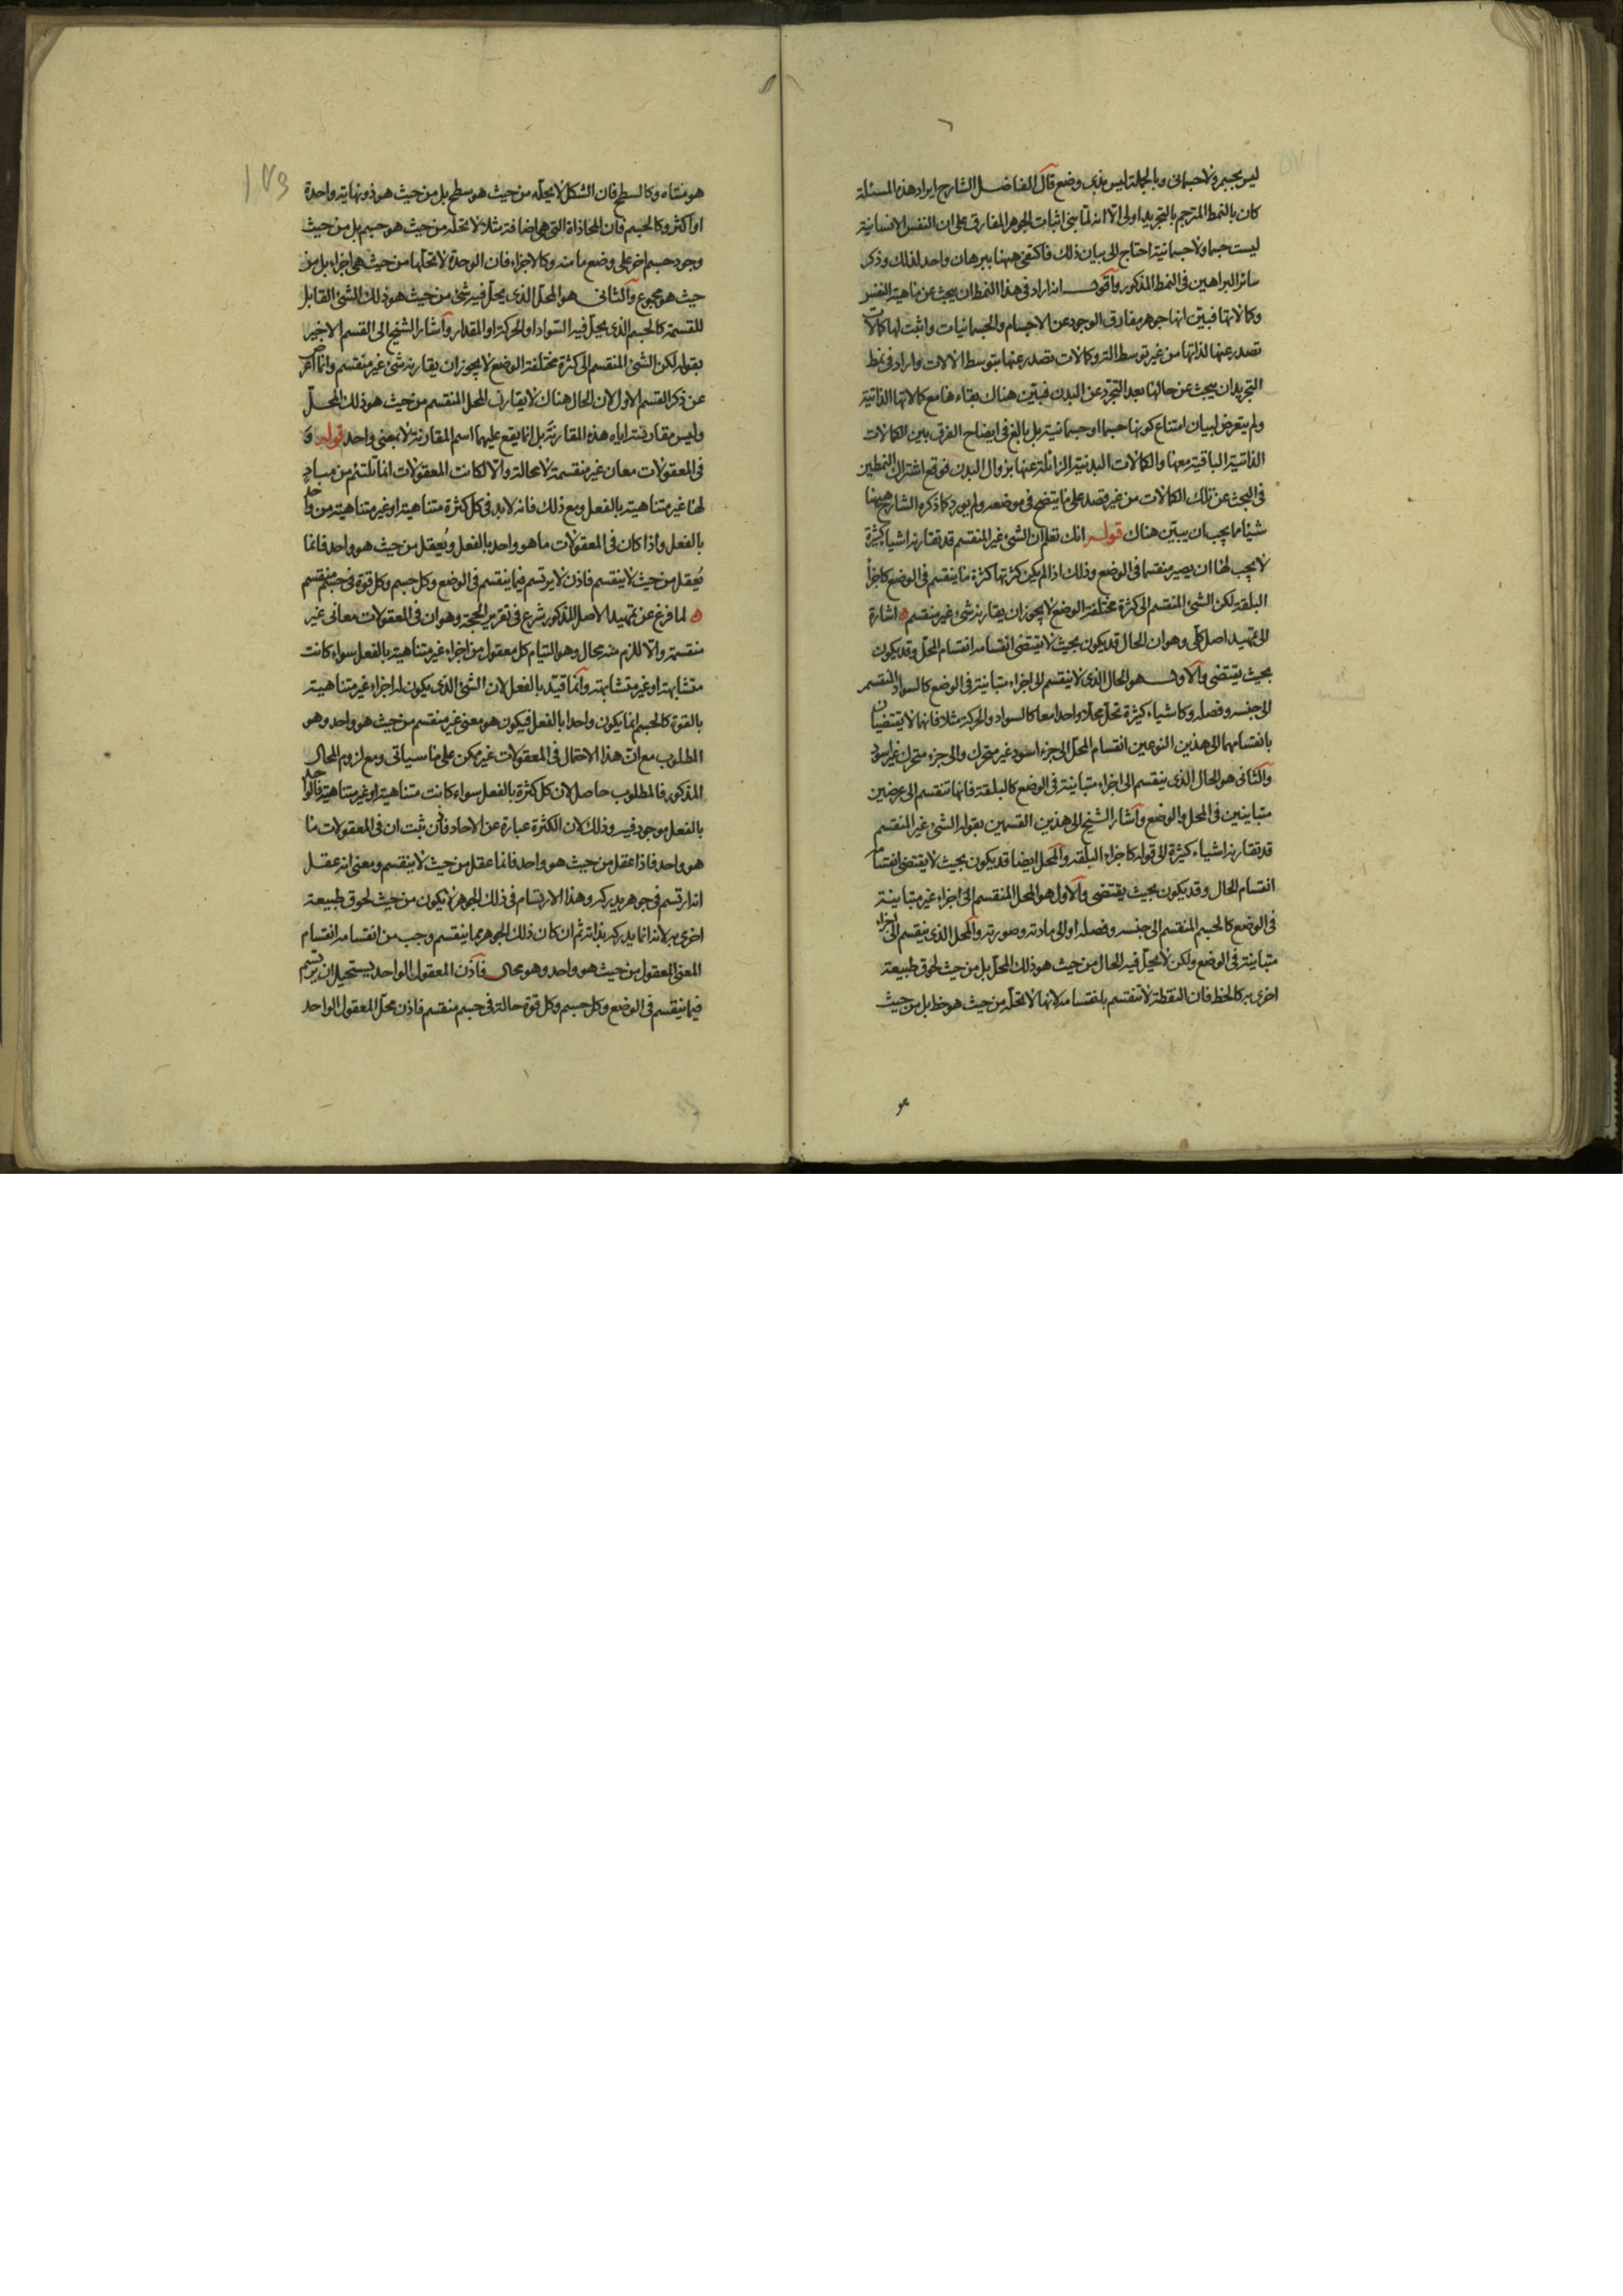 ليس بجسم ولا جسمانى وبالجملة ليس بذى وضع قال الفاضل الشارح ايراد هذه المسئلة
كان بالنمط المترجم بالتجريد اولى الا انه لما بنى اثبات الجوهر المفارق على ان النفس الانسانية
ليست جسما ولا جسمانية احتاج الى بيان ذلك فاكتفى ههنا ببرهان واحد لذلك وذكر
سائر البراهين فى النمط المذكور واقول انه اراد فى هذا النمط ان يبحث عن ماهية النفس
وكمالاتها فبين انها جوهر مفارق الوجود عن الاجسام والجسمانيات واثبت لها كمالات
تصدر عنها لذاتها من غير توسط الة وكمالات تصدر عنها بتوسط الالات واراد فى نمط
التجريد ان يبحث عن حالها بعد التجرد عن البدن فبين هناك بقاءها مع كمالاتها الذاتية
ولم يتعرض لبيان امتناع كونها جسما او جسمانية بل بالغ فى ايضاح الفرق بين الكمالات
الذاتية الباقية معها والكمالات البدنية الزائلة عنها بزوال البدن فوقع اشتراك النمطين
فى البحث عن تلك الكمالات من غير قصد على ما يتضح فى موضعه ولم يورد كما ذكره الشارح ههنا
شيئا مما يجب ان يبين هناك قوله انك تعلم ان الشئ غير المنقسم قد تقارنه اشياء كثيرة
لا يجب لها ان يصير منقسما فى الوضع وذلك اذا لم يكن كثرتها كثرة ما ينقسم فى الوضع كاجزاء
البلقة لكن الشئ المنقسم الى كثرة مختلفة الوضع لا يجوز ان يقارنه شئ غير منقسم ه اشارة
الى تمهيد اصل كلى وهو ان الحال قد يكون بحيث لا يقتضى انقسامه انقسام المحل وقد يكون
بحيث يقتضى والاول هو الحال الذى لا ينقسم الى اجزاء متباينة فى الوضع كالسواد المنقسم
الى جنسه وفصله وكاشياء كثيرة تحل محلا واحدا معا كالسواد والحركة مثلا فانهما لا يقتضيان
بانقسامهما الى هذين النوعين انقسام المحل الى جزء اسود غير متحرك والى جزء متحرك غير اسود
والثانى هو الحال الذى ينقسم الى اجزاء متباينة فى الوضع كالبلقة فانها تنقسم الى عرضين
متباينين فى المحل والوضع واشار الشيخ الى هذين القسمين بقوله الشئ غير المنقسم
قد تقارنه اشياء كثيرة الى قوله كاجزاء البلقه والمحل ايضا قد يكون بحيث لا يقتضى انقسامه
انقسام الحال وقد يكون بحيث يقتضى والاول هو المحل المنقسم الى اجزاء غير متباينة
فى الوضع كالجسم المنقسم الى جنسه وفصله او الى مادته وصورته والمحل الذى ينقسم الى اجزاء
متباينة فى الوضع ولكن لا يحل فيه الحال من حيث هو ذلك المحل بل من حيث لحوق طبيعة
اخرى به كالخط فان النقطة لا تنقسم بانقسامه لانها لا تحله من حيث هو خط بل من حيث
هو متناه وكالسطح فان الشكل لا يحله من حيث هو سطح بل من حيث هو ذو نهاية واحدة
او اكثر وكالجسم فان المحاذاة التى هى اضافة مثلا لا تحله من حيث هو جسم بل من حيث
وجود جسم اخر على وضع ما منه وكالاجزاء فان الوحدة لا تحلها من حيث هى اجزاء بل من
حيث هو مجموع والثانى هو المحل الذى يحل فيه شئ من حيث هو ذلك الشئ القابل
للقسمة كالجسم الذى يحل فيه السواد او الحركة او المقدار واشار الشيخ الى القسم الاخير
بقوله لكن الشئ المنقسم الى كثرة مختلفة الوضع لا يجوز ان يقارنه شئ غير منقسم وانما اعرض
عن ذكر القسم الاول لان الحال هناك لا يقارن المحل المنقسم من حيث هو ذلك المحل
وليس مقارنته اياه هذه المقارنة بل انما يقع عليهما اسم المقارنة لا بمعنى واحد قوله و
فى المعقولات معان غير منقسمة لا محالة والا لكانت المعقولات انما تلتئم من مباد
لها غير متناهية بالفعل ومع ذلك فانه لا بد فى كل كثرة متناهية او غير متناهية من واحد
بالفعل واذا كان فى المعقولات ما هو واحد بالفعل ويعقل من حيث هو واحد فانما
يعقل من حيث لا ينقسم فاذن لا يرتسم فيما ينقسم فى الوضع وكل جسم وكل قوة فى جسم منقسم
ه لما فرغ عن تمهيد الاصل المذكور شرع فى تقرير الحجة وهو ان فى المعقولات معانى غير
منقسمة والا للزم منه محال وهو التيام كل معقول من اجزاء غير متناهية بالفعل سواء كانت
متشابهة او غير متشابهة وانما قيد بالفعل لان الشئ الذى يكون له اجزاء غير متناهية
بالقوة كالجسم انما يكون واحدا بالفعل فيكون هو معنى غير منقسم من حيث هو واحد وهو
المطلوب مع ان هذا الاحتمال فى المعقولات غير ممكن على ما سياتى ومع لزوم المحال
المذكور فالمطلوب حاصل لان كل كثرة بالفعل سواء كانت متناهية او غير متناهية فالواحد
بالفعل موجود فيه وذلك لان الكثرة عبارة عن الاحاد فاذن ثبت ان فى المعقولات ما
هو واحد فاذا عقل من حيث هو واحد فانما عقل من حيث لا ينقسم ومعنى انه عقل
انه ارتسم فى جوهر يدركه وهذا الارتسام فى ذلك الجوهر لا يكون من حيث لحوق طبيعة
اخرى به لانه انما يدركه بذاته ثم ان كان ذلك الجوهر مما ينقسم وجب من انقسامه انقسام
المعنى المعقول من حيث هو واحد وهو محال فاذن المعقول الواحد يستحيل ان يرتسم
فيما ينقسم فى الوضع وكل جسم وكل قوة حالة فى جسم منقسم فاذن محل المعقول الواحد